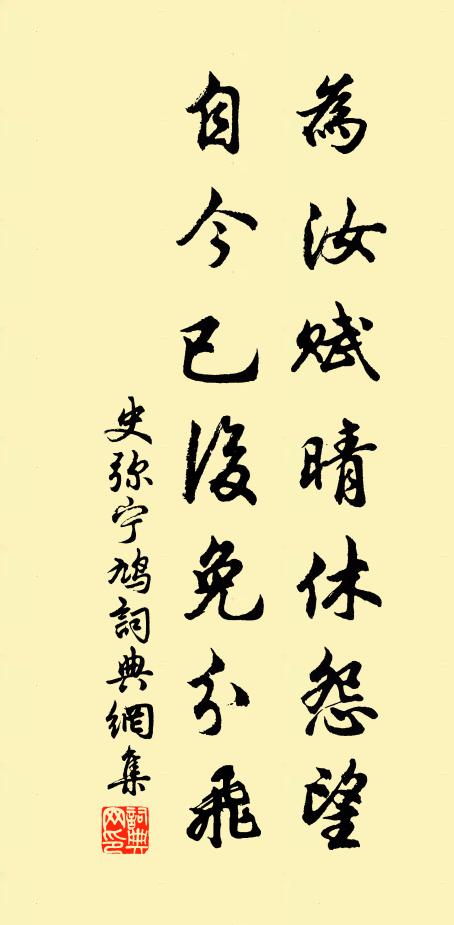 為汝赋晴休怨望
自今已後免分飛
史弥宁鸠詞典網集
詞典网印